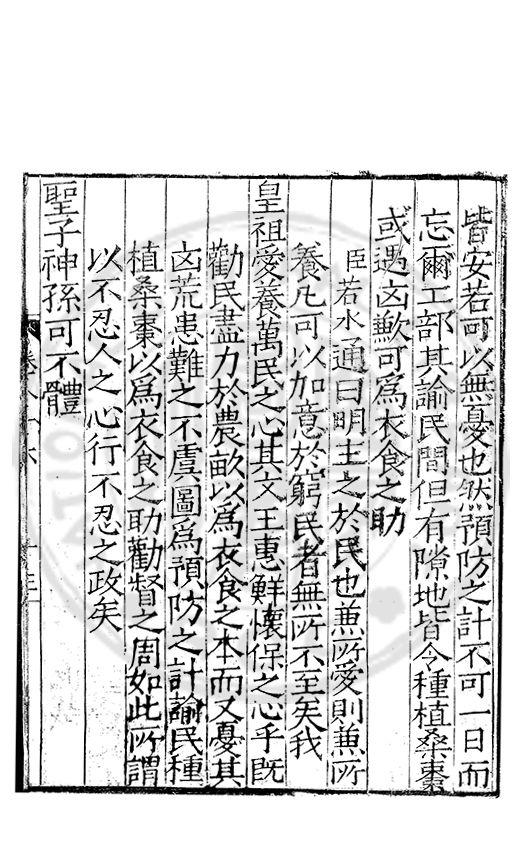 皆安若可以無憂也然預防之計不可一日而
忘爾工部其諭民間但有隙地皆令種植桑棗
或遇凶歉可爲衣食之助
臣若水通曰明主之於民也兼所愛則兼所
養凢可以加意於窮民者無所不至矣我
皇祖愛養萬民之心其文王惠鮮懷保之心乎既
勸民盡力於農畝以爲衣食之本而又憂其
凶荒患難之不虞圖爲預防之計諭民種
植桑棗以爲衣食之助勸督之周如此所謂
以不忍人之心行不忍之政矣
聖子神孫可不體